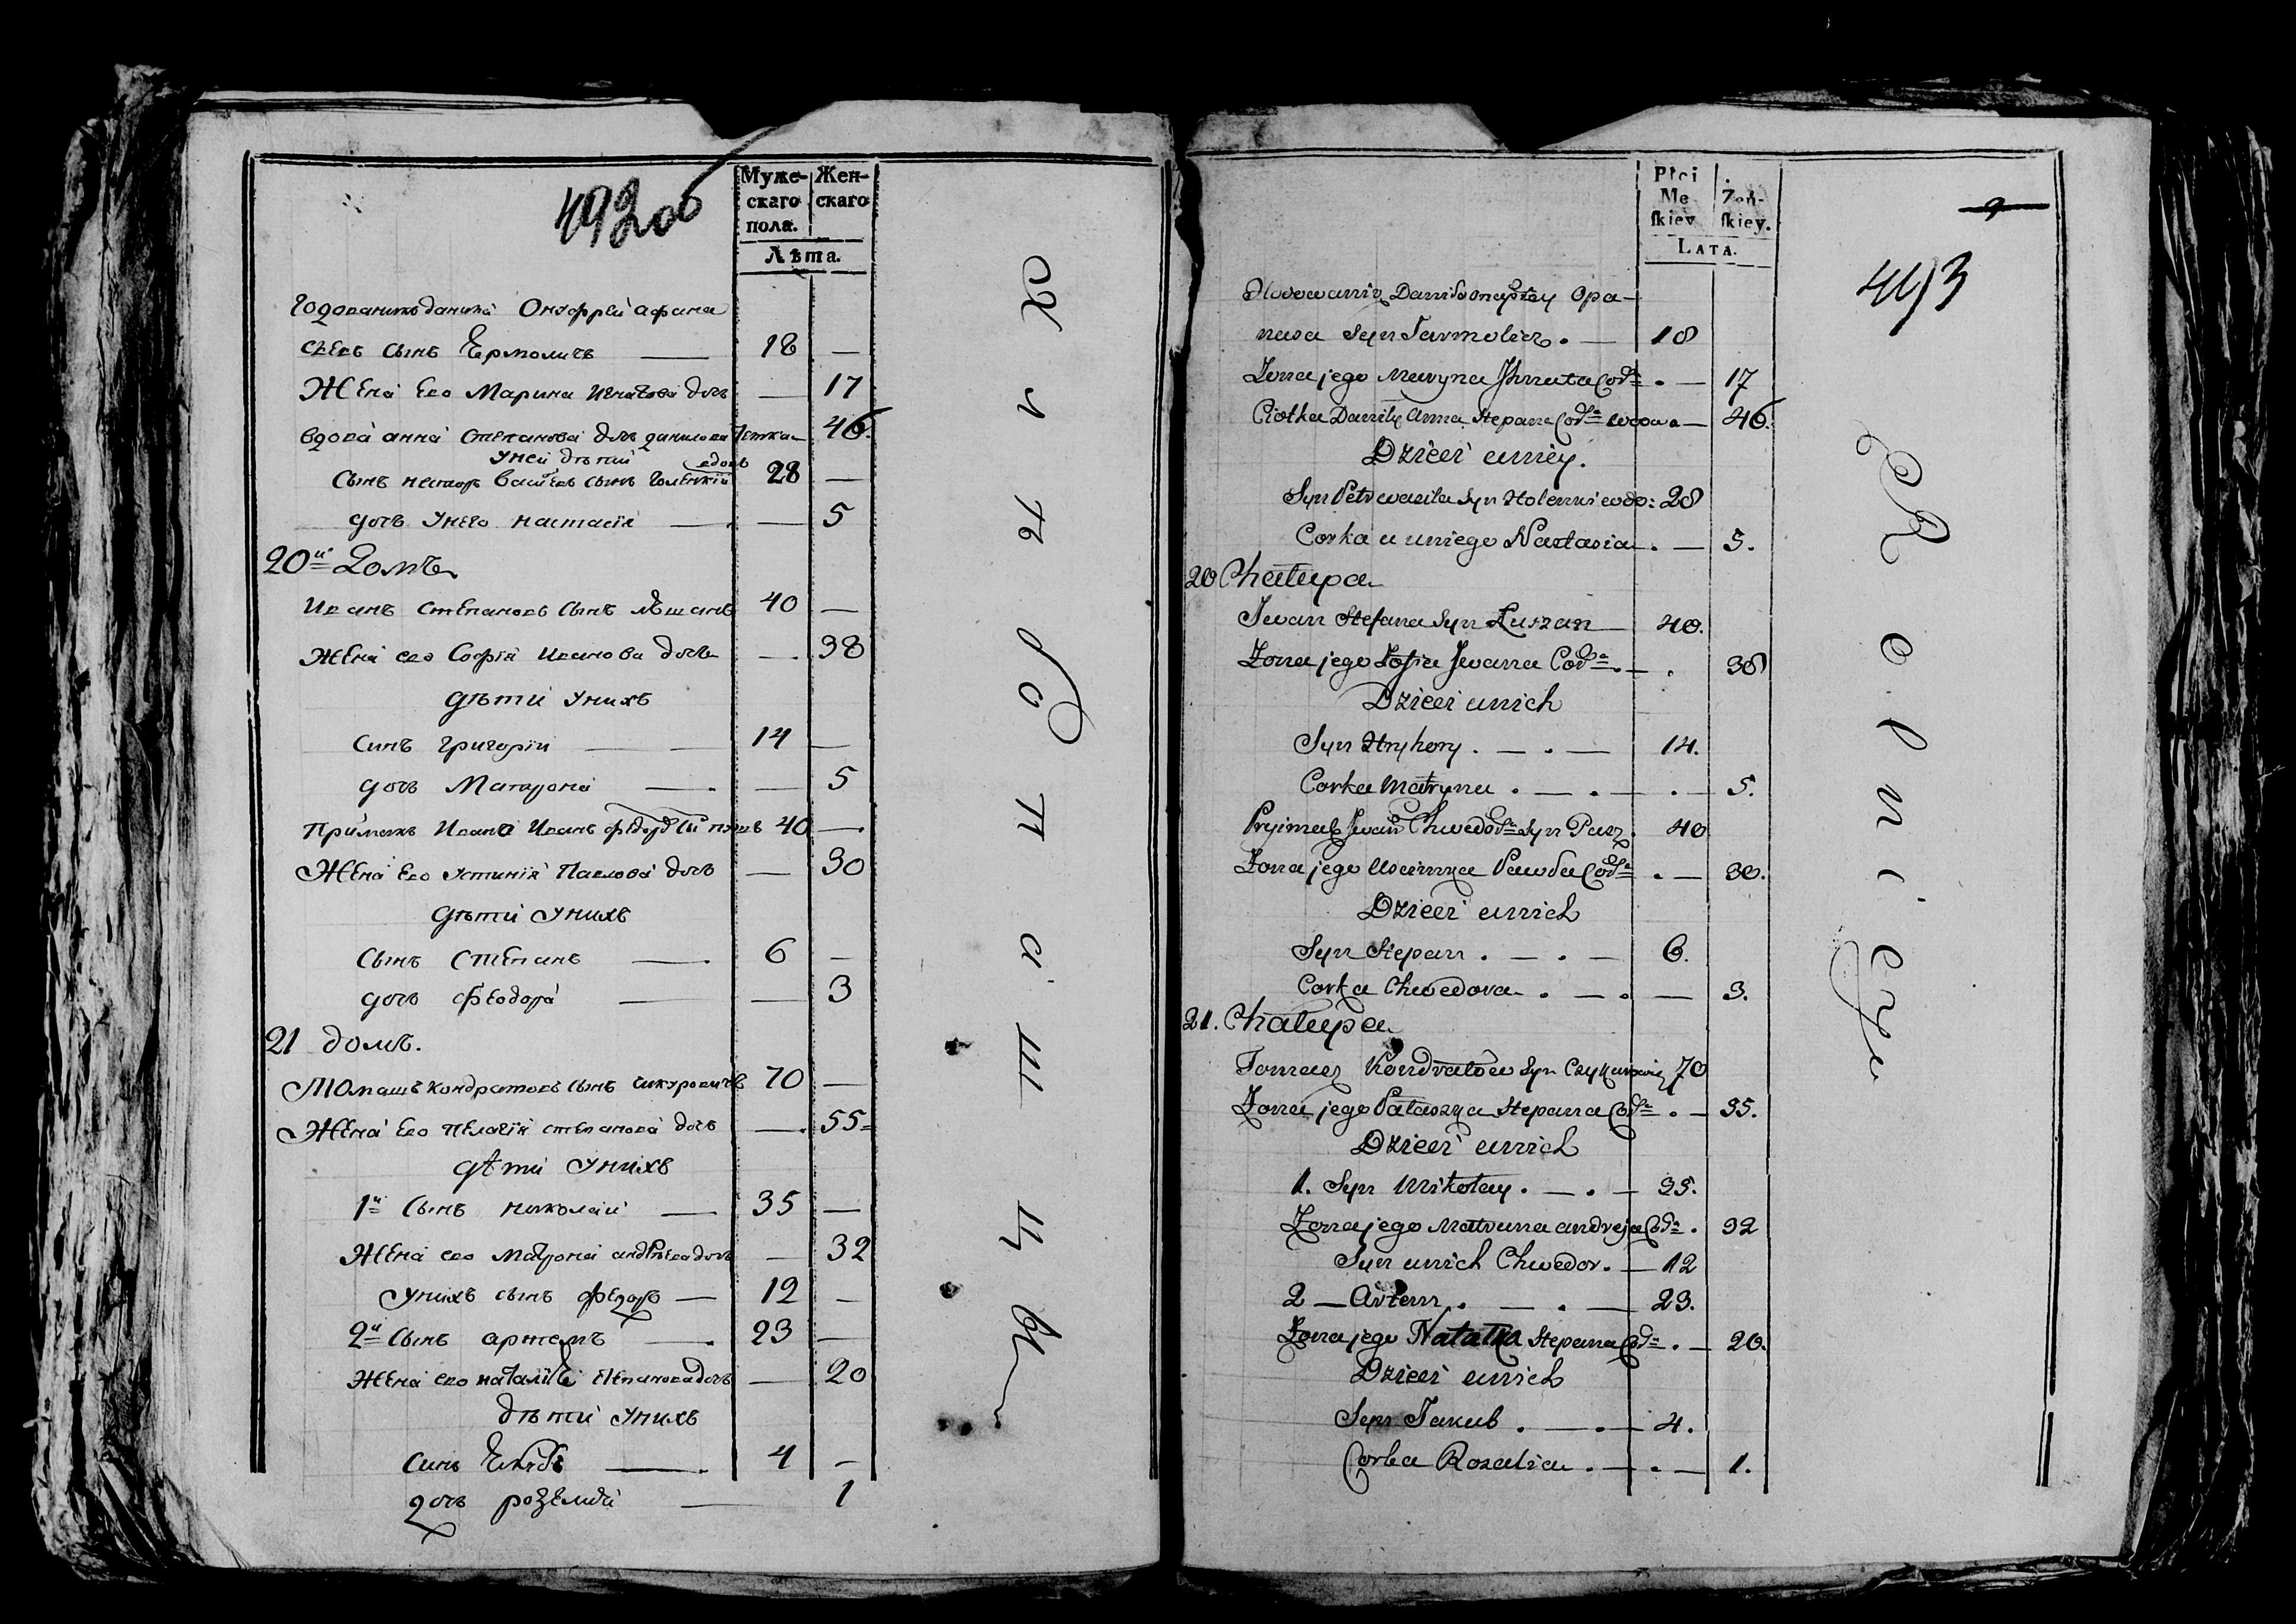 492 об
Муже-
скаго
пола.
Жен-
скаго
Лѣта.
Годованикъ данила Онуфрей афана
сьевъ сынъ Ермоличъ — 18 —
Жена его Марина Игнатова дочь — 17
вдова анна Степанова дочь данилова тетка — 46.
У ней дѣти
Сынъ петръ васильевъ сынъ вдовъ 28 —
дочь у него настасія — — 5
20й Домъ
Иванъ Степановъ сынъ лушанъ 40 —
Жена его Софія Иванова дочь — 38
дѣти у нихъ
Синъ григорій — 14 —
дочь Матрона — — 5
примакъ Ивана Иванъ федоровъ 40 —
Жена его устинія Павлова дочь — 30
дѣти у нихъ
Сынъ Степанъ — 6 —
дочь феодора — — 3
21 домъ.
Томашъ кондратовъ сынъ 70 —
Жена его пелагія степанова дочь — 55
дѣти у нихъ
1й Сынъ николай — 35 —
Жена его матрона андреева дочь — 32
у нихъ сынъ федоръ — 12 —
2й Сынъ артемъ — 23 —
Жена его наталія степанова дочь — 20
дѣти у нихъ
синъ — 4 —
дочь розалія — 1
Хлѣбопашцы
Płci
Mę
skiey
Żeń-
skiey.
LATA.
9
493
Hodowaniec Daniła onufrey Opa-
nasa Syn Jarmolicz. — 18
Żona jego Maryna Ihnata Cór: . — 17
Ciotka Daniły Anna Stepana Cór: wdowa — 46.
Dzieci u niéy.
Syn Petr wasila Syn wdo: 28
Corka u niego Nastasia . — 5.
20 Chałupa
Iwan Stefana Syn Łuszan 40.
Żona jego Zofia Iwana Cór: . — . 38
Dzieci u nich
Syn Hryhory . — . — 14.
Corka Matryna . — . — . — 5.
Pryimak Iwan Chwedora Syn 40
Żona jego Uscinnya Pawła Cór: . — 30.
Dzieci u nich
Syn Stepan . — . — 6.
Corka Chwedora . — . — 3.
21. Chałupa
Tomasz Kondratow Syn 70
Żona jego Pałaszya Stepana Cór: . — 55.
Dzieci u nich
1. Syn Mikołay . — . — 35.
Żona jego Matruna andreja Cór: . 32
Syn u nich Chwedor. — 12
2 — Artem . — . — 23.
Żona jego Natalia Stepana Cór: . — 20.
Dzieci u nich
Syn Jakub . — . — 4.
Corka Rozalia . — . — 1.
Rolnicy